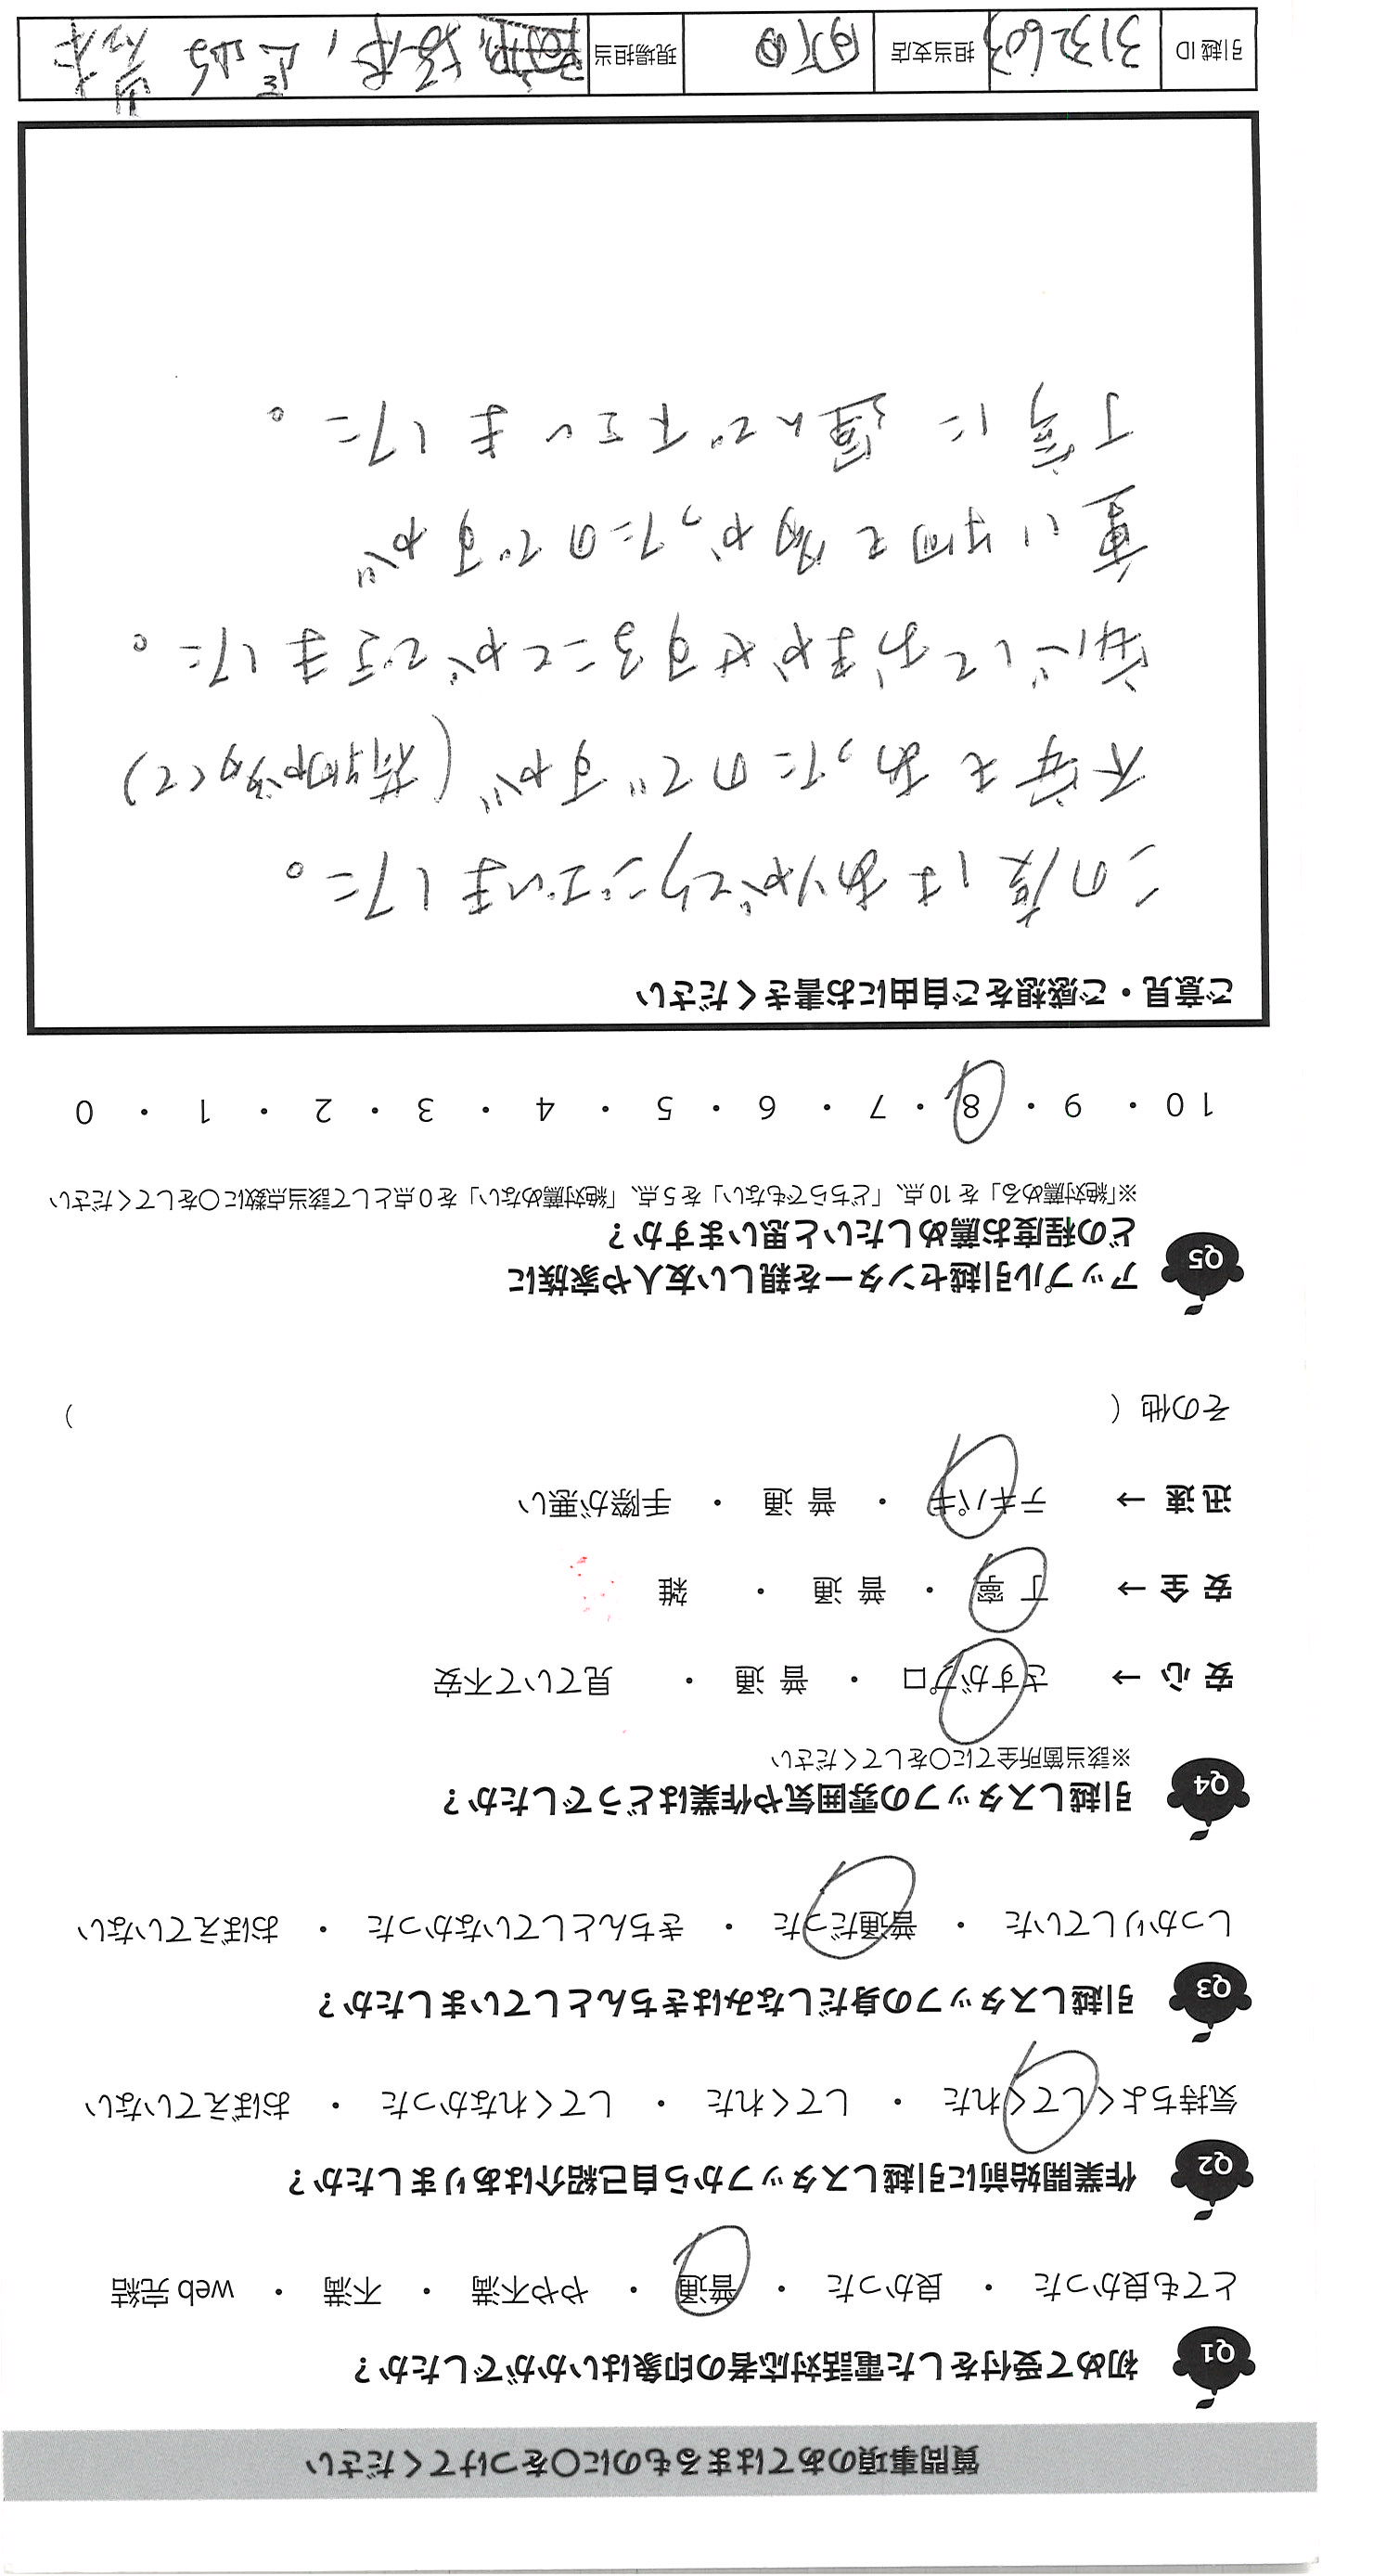 質問事項のあてはまるものに○をつけてください
Q1 初めて受付をした電話対応者の印象はいかがでしたか？
とても良かった ・ 良かった ・ 普通 ・ やや不満 ・ 不満 ・ web 完結
Q2 作業開始前に引越しスタッフから自己紹介はありましたか？
気持ちよくしてくれた ・ してくれた ・ してくれなかった ・ おぼえていない
Q3 引越しスタッフの身だしなみはきちんとしていましたか？
しっかりしていた ・ 普通だった ・ きちんとしていなかった ・ おぼえていない
Q4 引越しスタッフの雰囲気や作業はどうでしたか？
※該当箇所全てに○をしてください
安 心 → さすがプロ ・ 普 通 ・ 見ていて不安
安 全 → 丁 寧 ・ 普 通 ・ 雑
迅 速 → テキパキ ・ 普 通 ・ 手際が悪い
その他（ ）
Q5 アップル引越センターを親しい友人や家族に
どの程度お薦めしたいと思いますか？
※「絶対薦める」を 10 点、「どちらでもない」を 5 点、「絶対薦めない」を 0 点として該当点数に○をしてください
10 ・ 9 ・ 8 ・ 7 ・ 6 ・ 5 ・ 4 ・ 3 ・ 2 ・ 1 ・ 0
ご意見・ご感想をご自由にお書きください
この度はありがとうございました。
不安もあったのですが（荷物多くて）
安心しておまかせすることができました。
重い物も多かったのですが
丁寧に運んで下さいました。
引越 ID 3132603 担当支店 現場担当